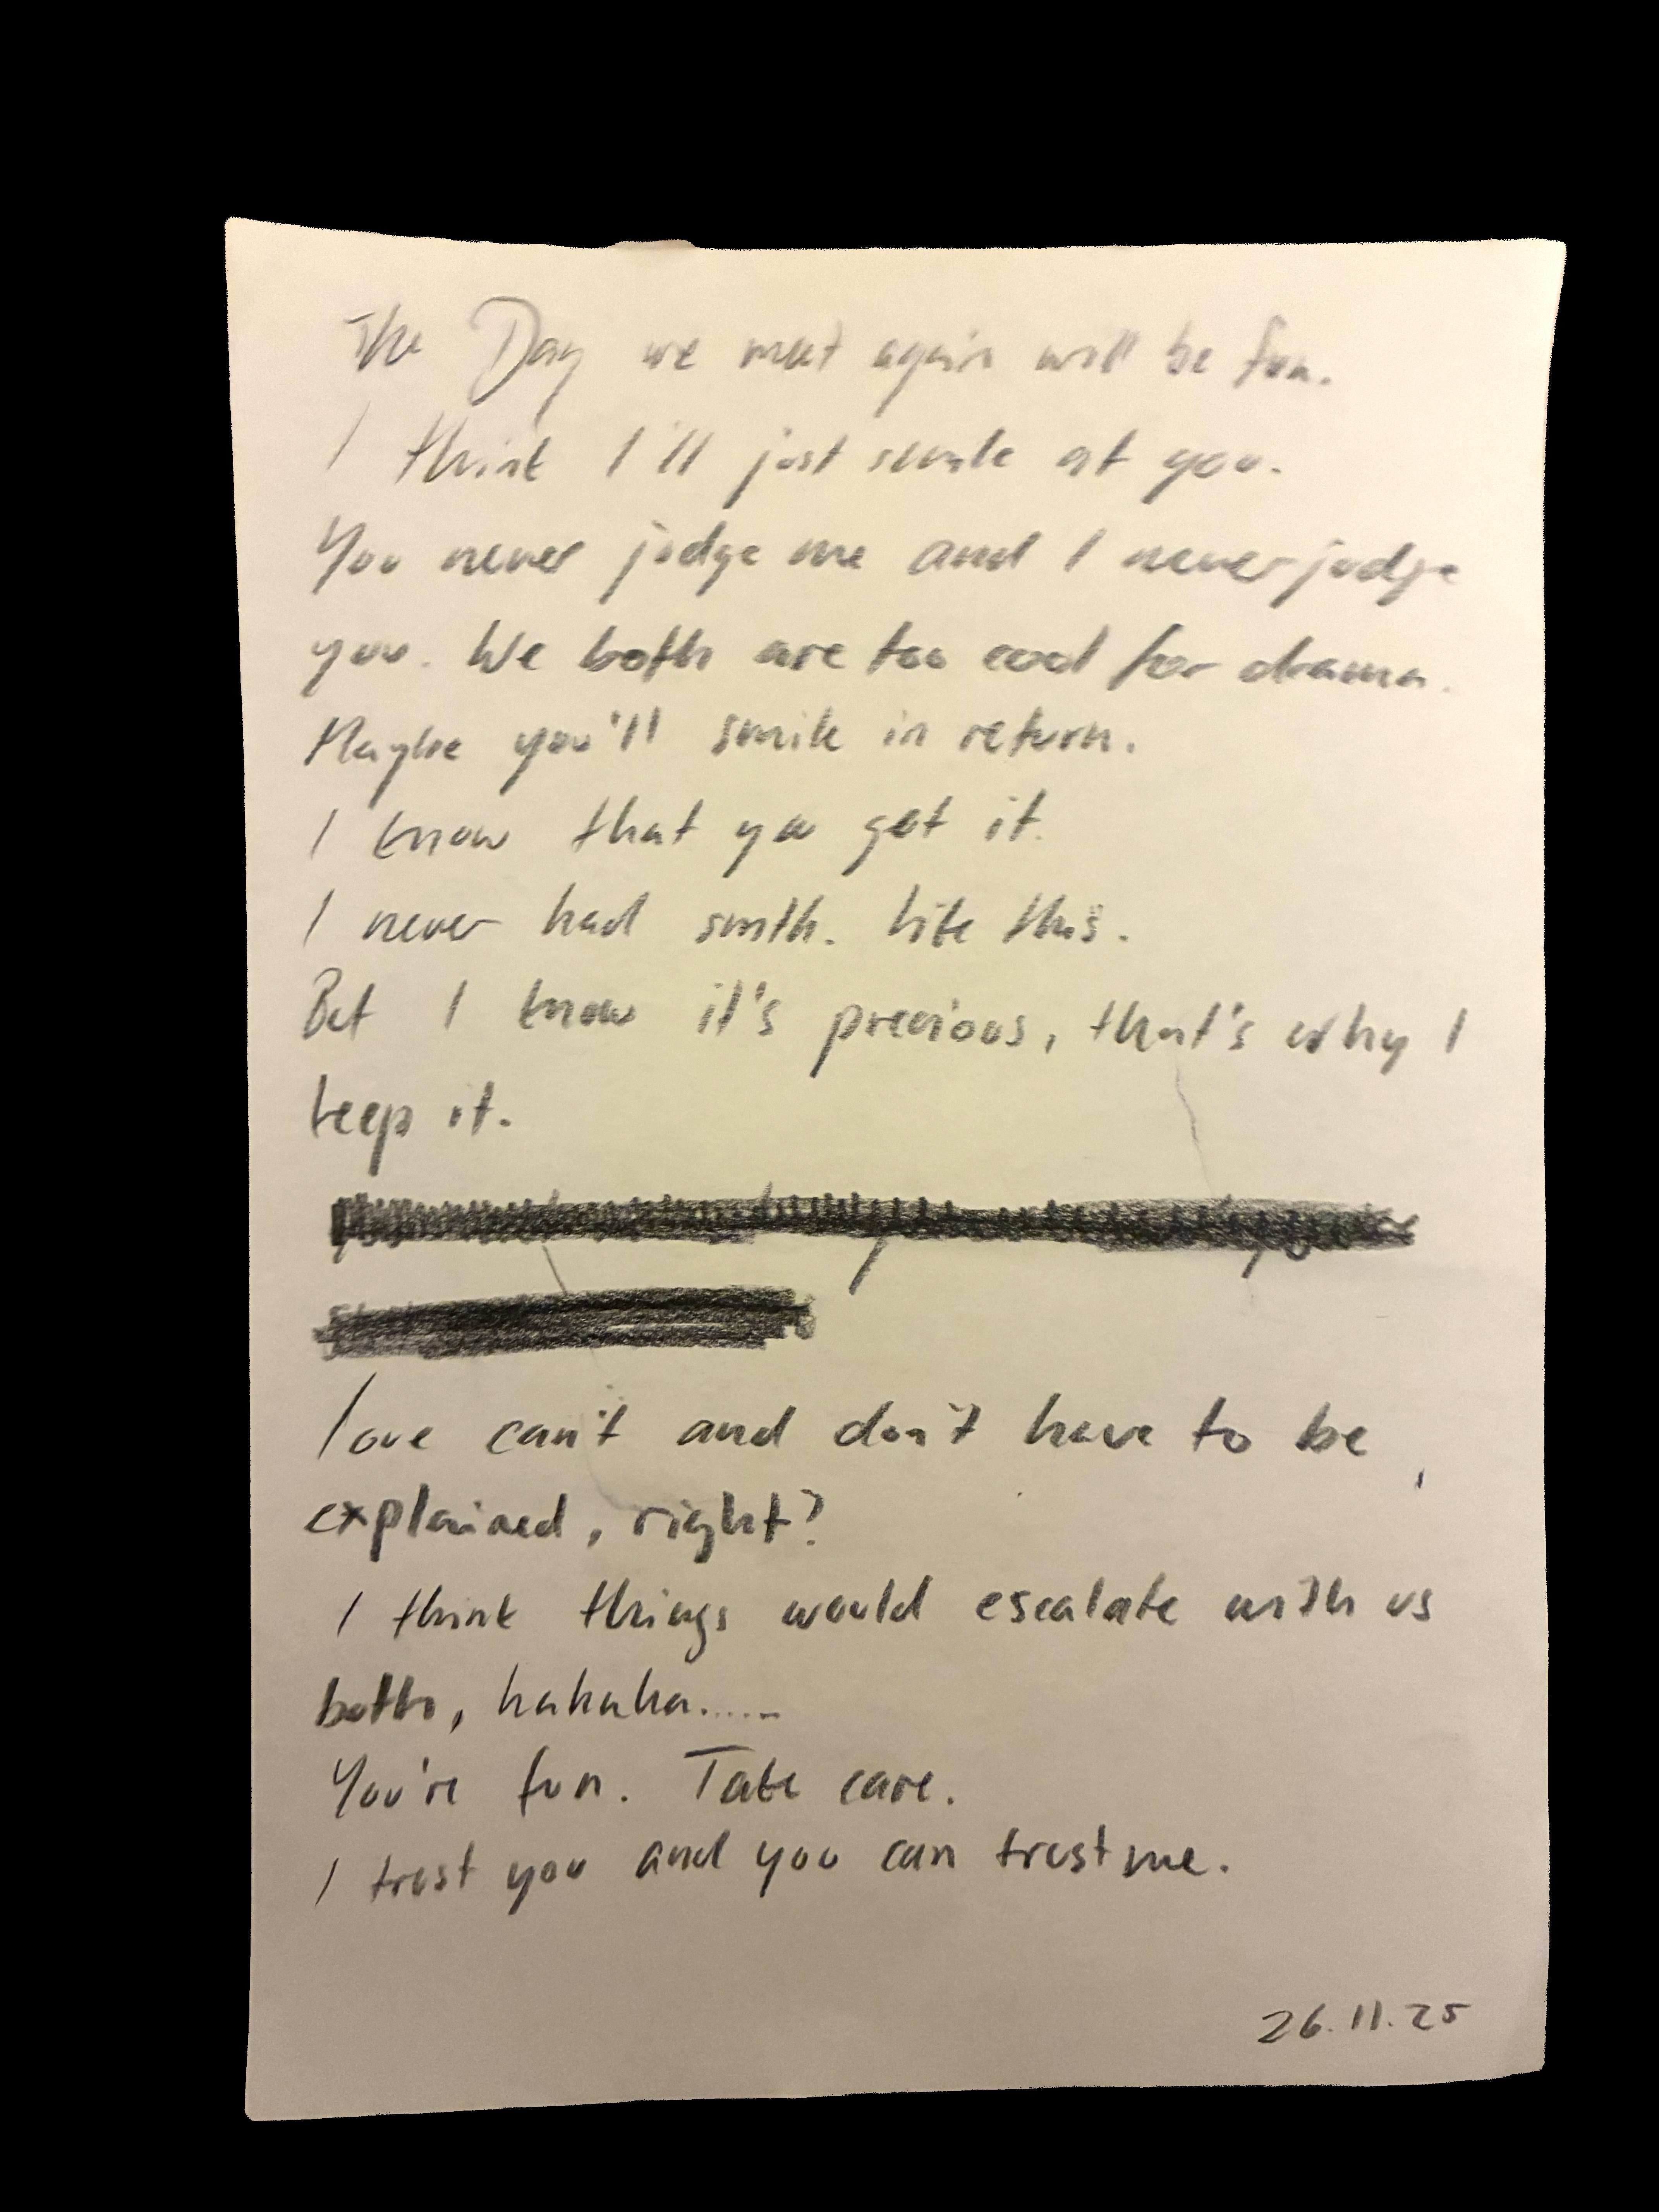 The Day we meet again will be fun.
I think I'll just smile at you.
You never judge me and I never judge
you. We both are too cool for drama.
Maybe you'll smile in return.
I know that you get it.
I never had smth. like this.
But I know it's precious, that's why I
keep it.
love can't and don't have to be
explained, right?
I think things would escalate with us
both, hahaha......
You're fun. Take care.
I trust you and you can trust me.
26.11.25